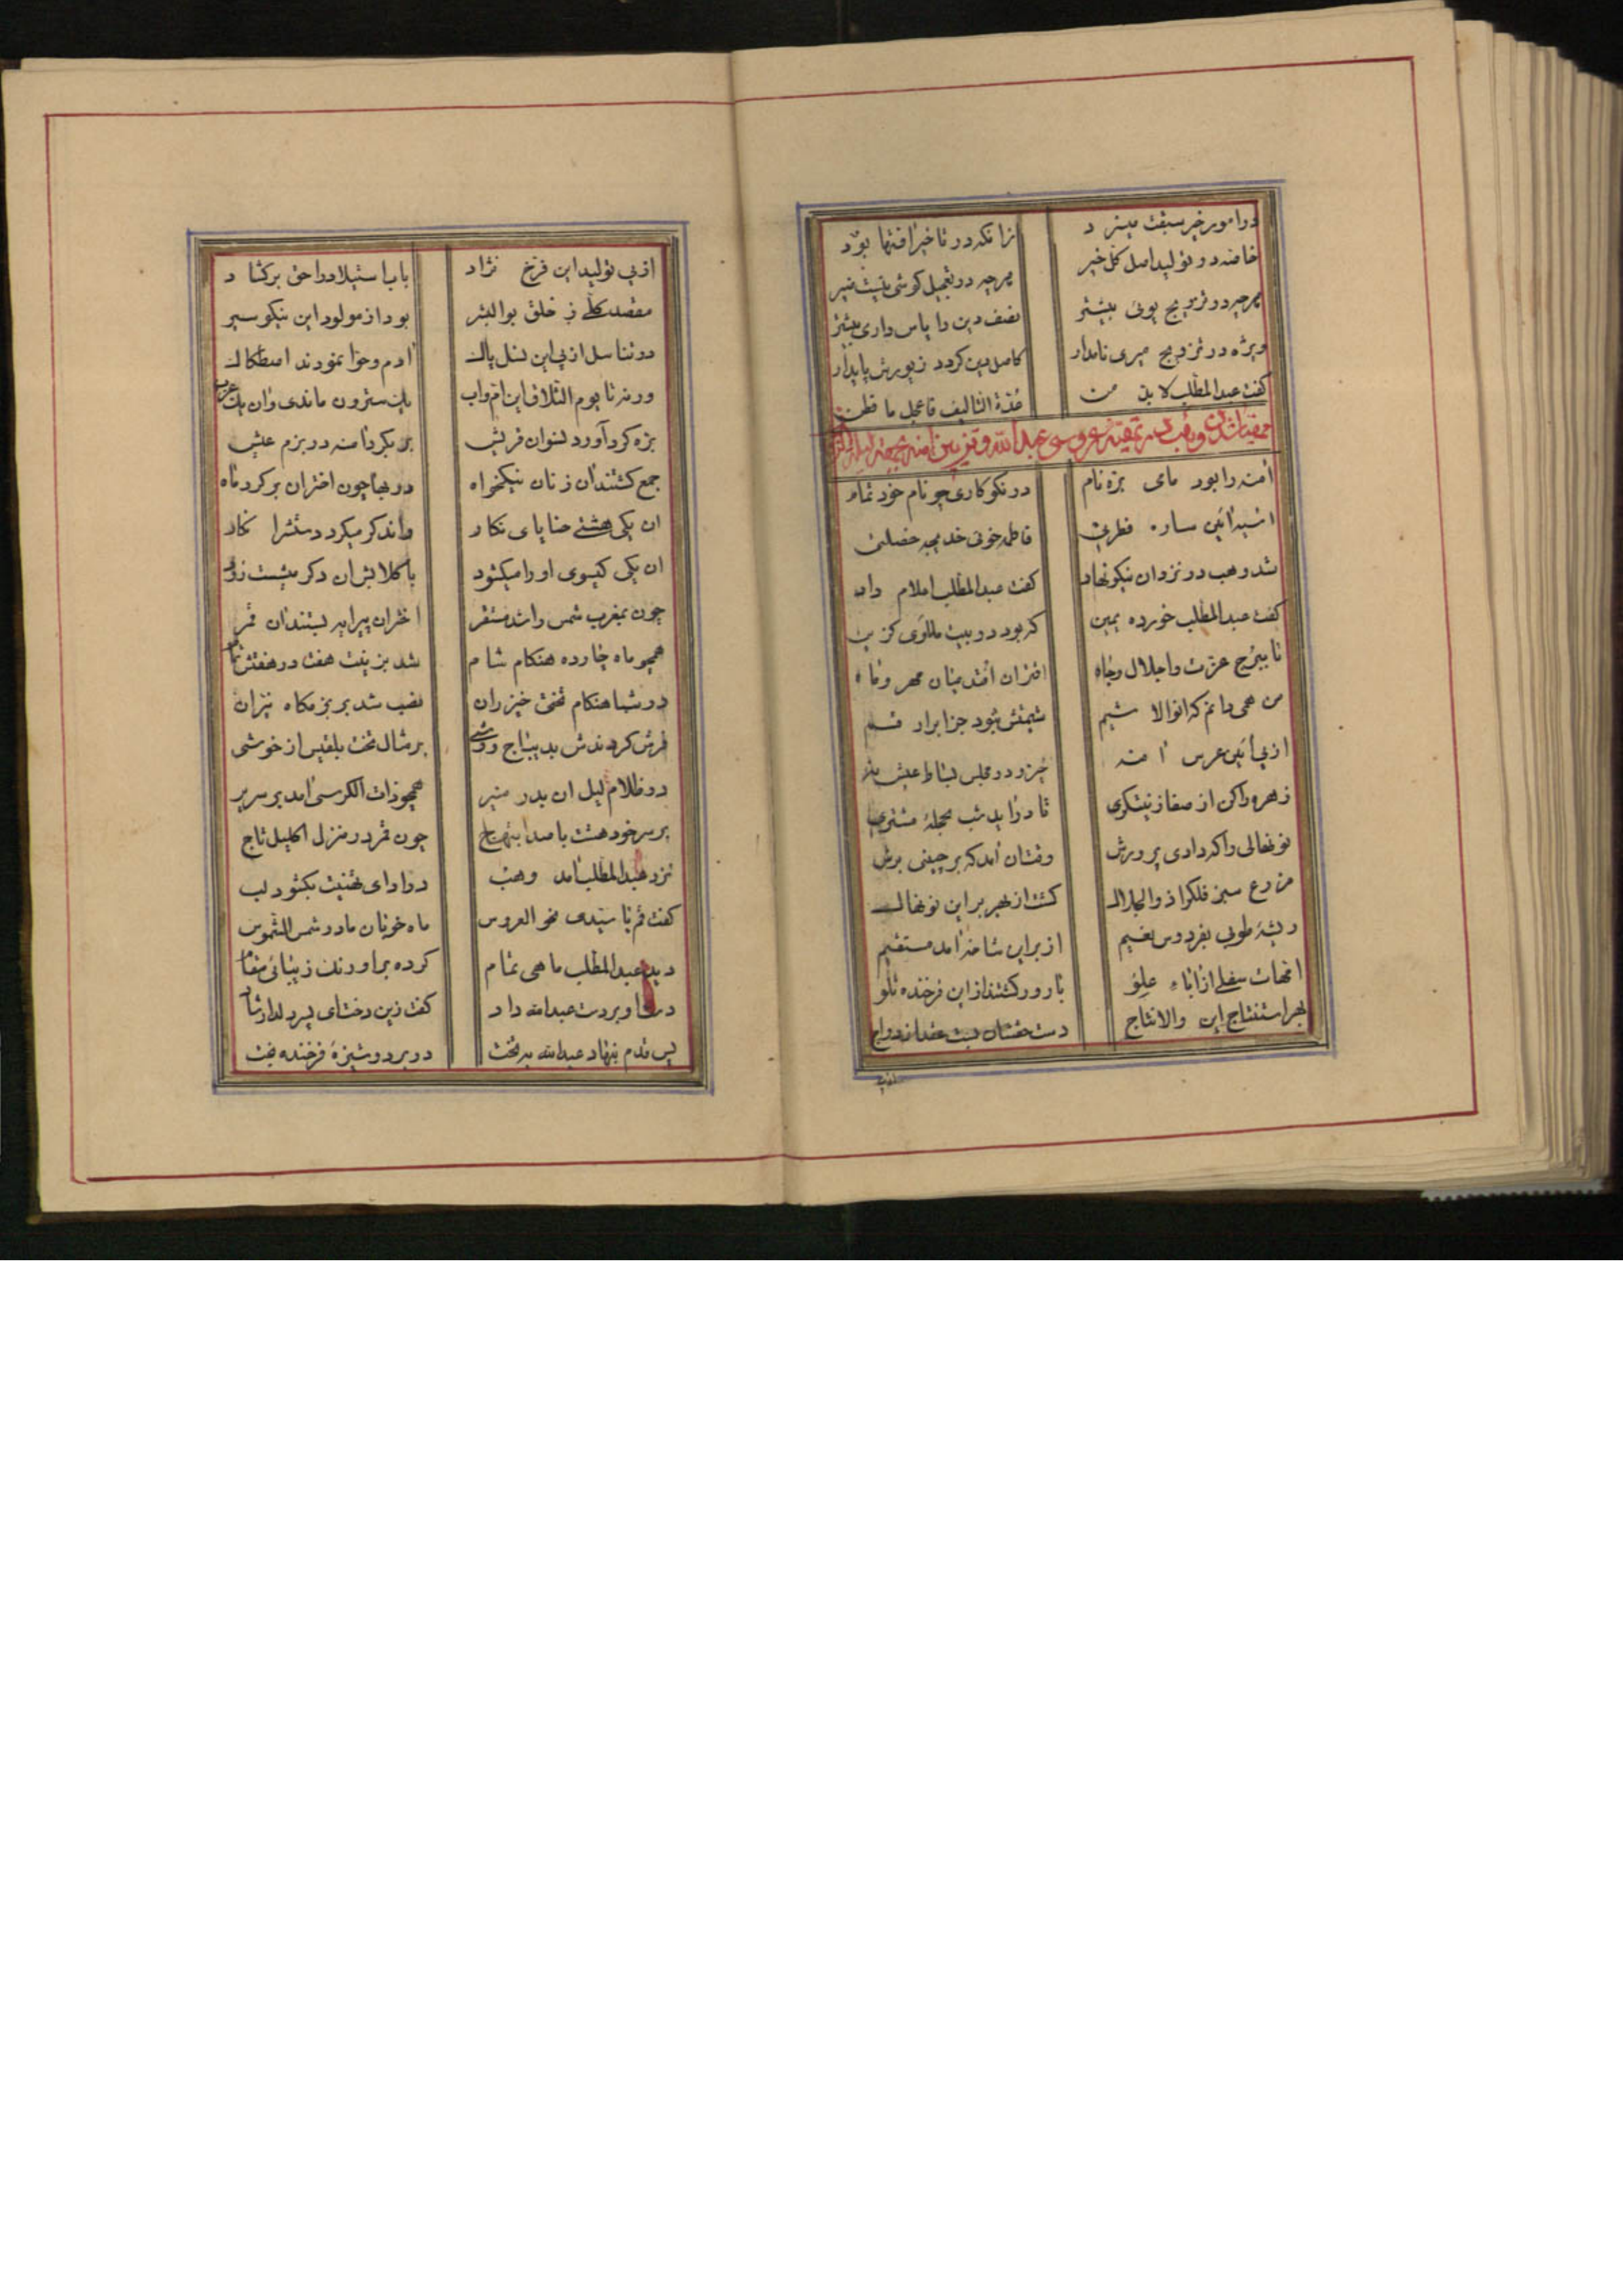 در امور خیر سبقت میسزد
زانکه در تاخیر افتها بود
خاصه در تولید اصل کل خیر
هرچه در تعجیل کوشی نیست ضیر
هرچه در تزویج پوئی بیشتر
نصف دین را پاس داری بیشتر
ویژه در تزویج میری نامدار
کامل دین کردد زپورش پایدار
کفت عبدالمطلب لابد من
هذه التالیف فاعجل ما قطن
وهب عروسی عبدالله و تزیین امنه
آمنه را بود مامی بره نام
در نکوکاری چو نام خود تمام
اسیه آئین ساره فطرتی
فاطمه خوئی خدیجه خصلتی
شد وهب در نزد ان نیکو نهاد
کفت عبدالمطلب اعلام داد
کفت عبدالمطلب خورده یمین
که بود در بیت مللوی کزین
تا ببرج عزت و اجلال و جاه
اقتران افتد میان مهر و ماه
من همی دانم که انوالا شیم
شیمتش نبود جز ابرار قسم
از پی آئین عرس آمنه
خیز و در مجلس بساط عیش نه
زهره را کن از صفا زینتکری
تا دراید شب بحجله مشتری
نونهالی را که دادی پرورش
وقتان آمد که برچینی برش
مزرع سبز فلک را ذوالجلال
کشت از بهر بر این نونهال
ریشهٔ طوبی بفردوس نعیم
از برای شاخهٔ آمد مستقیم
امهات سفلی از اباء علو
بارور کشتند از این فرخنده تلو
بهر استنتاج این والانتاج
دست حقشان بست عقد ازدواج
از پی
از پی تولید این فرخ نژاد
باب استیلاد را حق برکشاد
مقصد کلی ز خلق بوالبشر
بود از مولود این نیکو سیر
در تناسل از پی این نسل پاک
ادم و حوا نمودند اصطکاک
ورنه تا یوم التلاق این ام و اب
یک سترون ماندی و ان یک عزب
بره کرد آورد نسوان قریش
بر بکرد آمنه در بزم عیش
جمع کشتند ان زنان نیکخواه
در بهاچون اختران بر کرد ماه
ان یکی هشتی حنا پای نکار
واندکر میکرد دستشرا نکار
ان یکی کیسوی او را میکشود
با کلابش ان دکر میشست زود
چون بمغرب شمس را شد مستقر
اختران پیرایه بستند ان قمر
همچو ماه چارده هنکام شام
شد بزینت هفت در هفتش تمام
در شباهنکام تختی خیزران
نصب شد بر بزمکاه نیران
فرش کردندش بدیباج و وشی
بر مثال تخت بلقیس از خوشی
در ظلام لیل ان بدر منیر
همچو ذات الکرسی آمد بر سریر
بر سر خود هشت با صد ابتهاج
چون قمر در منزل اکلیل تاج
نزد عبدالمطلب آمد وهب
در ادای تهنیت بکشود لب
کفت قم یا سیدی نحو العروس
ماه خوبان مادر شمس الشموس
دید عبدالمطلب ماهی تمام
کرده بر اورنک زیبائی مقام
دست او بر دست عبدالله داد
کفت زین دخت ای پسر دلدار شاد
پس قدم بنهاد عبدالله بتخت
در بر دوشیزهٔ فرخنده بخت